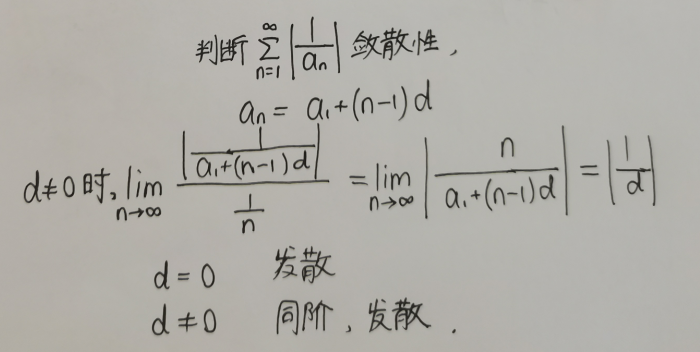 判断 $\sum_{n=1}^{\infty} \left| \frac{1}{a_n} \right|$ 敛散性,
$a_n = a_1 + (n-1)d$
$d \neq 0$ 时, $\lim_{n \to \infty} \frac{\left| \frac{1}{a_1 + (n-1)d} \right|}{\frac{1}{n}} = \lim_{n \to \infty} \left| \frac{n}{a_1 + (n-1)d} \right| = \left| \frac{1}{d} \right|$
$d = 0$ 发散
$d \neq 0$ 同阶, 发散.